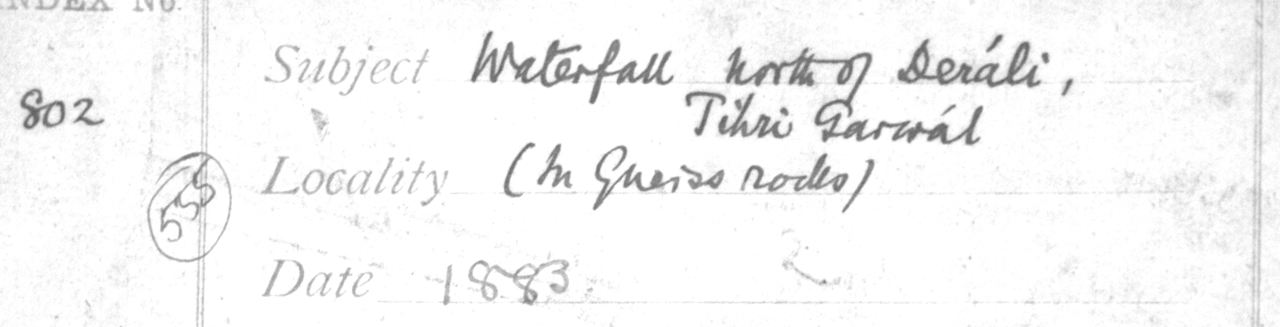 INDEX No.
802
Subject Waterfall north of Deráli,
Tihri Garwál
558
Locality (In Gneiss rocks)
Date 1883.